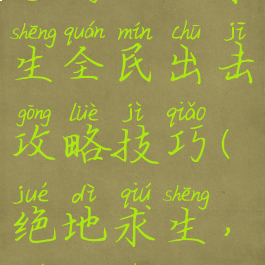 shēng quán mín chū jī
生全民出击
gōng lüè jì qiǎo
攻略技巧(
jué dì qiú shēng
绝地求生，